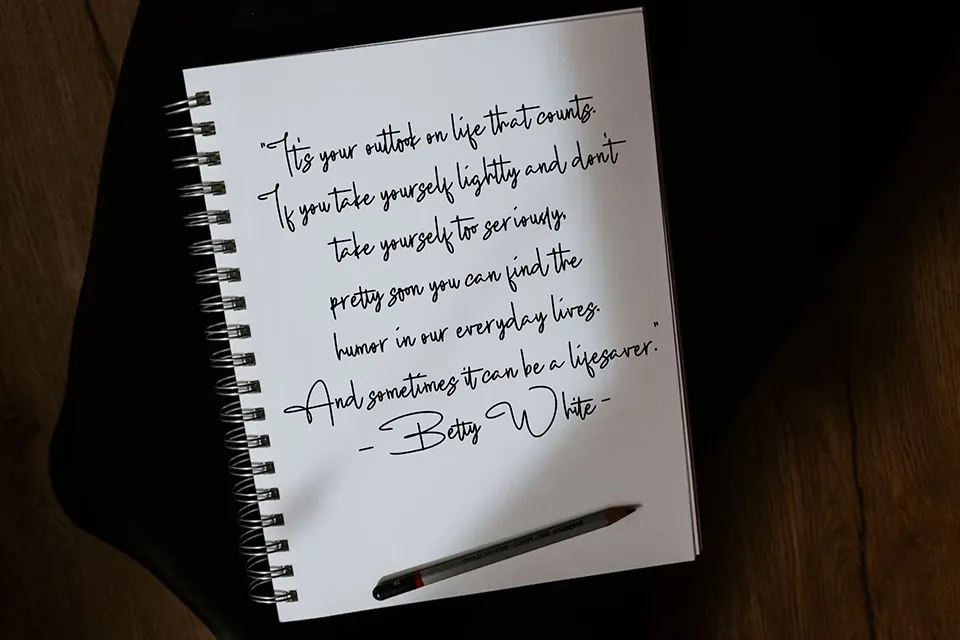 "It's your outlook on life that counts.
If you take yourself lightly and don't
take yourself too seriously,
pretty soon you can find the
humor in our everyday lives.
And sometimes it can be a lifesaver."
- Betty White -